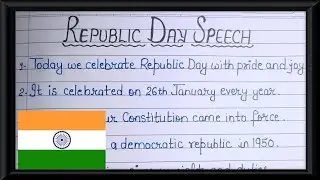 REPUBLIC DAY SPEECH
1- Today we celebrate Republic Day with pride and joy.
2- It is celebrated on 26th January every year.
ur Constitution came into force.
a democratic republic in 1950.